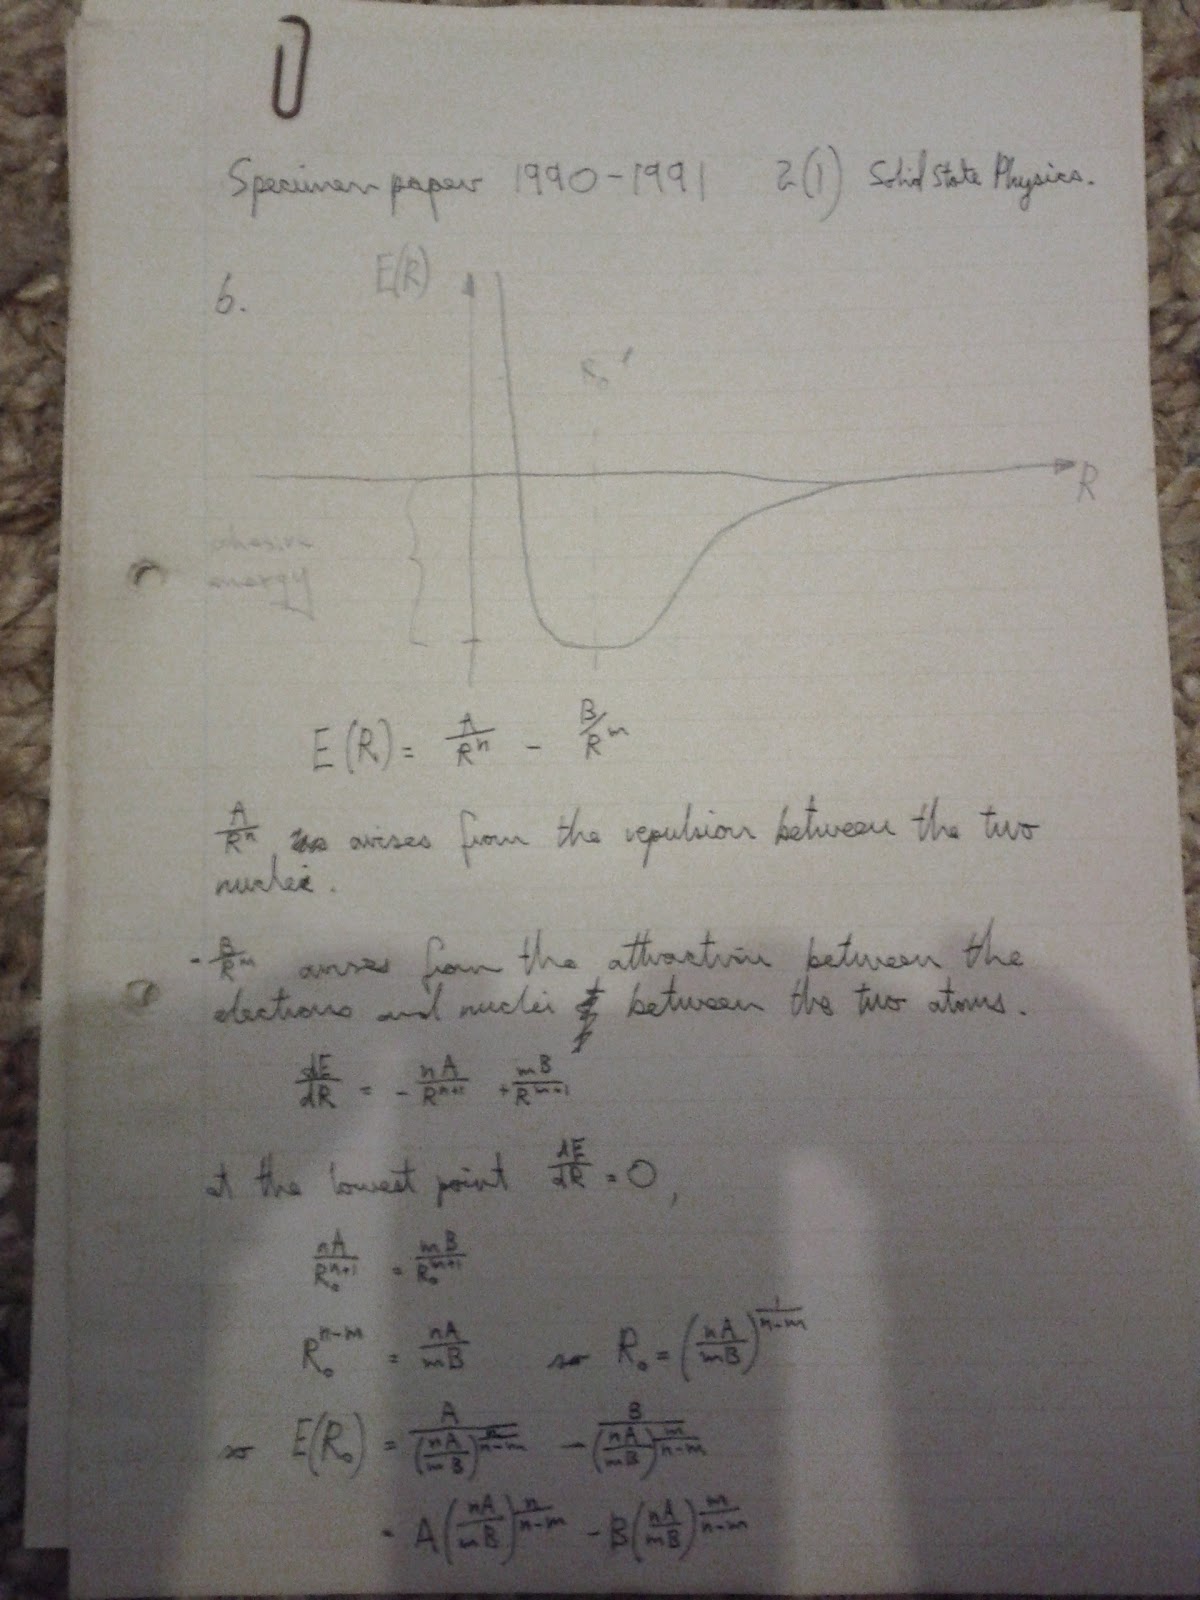 Specimen paper 1990-1991 2(1) Solid State Physics.
6.
E(R)
R₀
R
cohesive
energy
E(R) = A/Rⁿ - B/Rᵐ
A/Rⁿ arises from the repulsion between the two
nuclei.
- B/Rᵐ arises from the attraction between the
electrons and nuclei between the two atoms.
dE/dR = - nA/Rⁿ⁺¹ + mB/Rᵐ⁺¹
at the lowest point dE/dR = 0,
nA/R₀ⁿ⁺¹ = mB/R₀ᵐ⁺¹
R₀ⁿ⁻ᵐ = nA/mB so R₀ = (nA/mB)^(1/(n-m))
so E(R₀) = A/(nA/mB)^(n/(n-m)) - B/(nA/mB)^(m/(n-m))
= A(nA/mB)^(n/(n-m)) - B(nA/mB)^(m/(n-m))